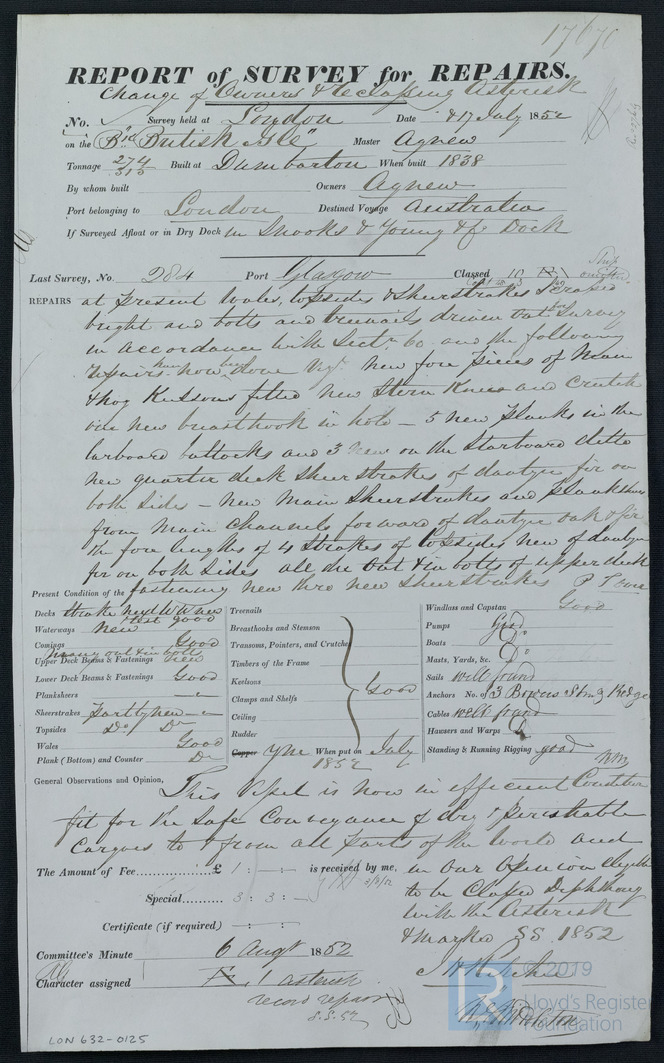 17670
REPORT of SURVEY for REPAIRS.
Change of Owners & Reclassing Asterisk
No. Survey held at London Date 17 July 1852
on the Bg "British Isle" Master Agnew
Tonnage 274 313 Built at Dumbarton When built 1838
By whom built Owners Agnew
Port belonging to London Destined Voyage Australia
If Surveyed Afloat or in Dry Dock in Snooks & Young & Co Dock
Last Survey, No. 284 Port Glasgow Classed
REPAIRS at present Wales, topsides & sheerstrakes scraped
bright and bolts and treenails driven out for Survey
in accordance with Sectn. 60 and the following
repairs have now been done Viz. new fore pieces of Main
& hog Kelsons fitted new Stern Knees and Crutch
one new breasthook in hold – 5 new planks in the
larboard buttocks and 3 new on the Starboard ditto
new quarter deck sheerstrakes of dantzic fir on
both sides – new main sheerstrakes and plank sheers
from main channels forward of dantzic oak & fir
the fore lengths of 4 strakes of topsides new of dantzic
fir on both sides all the out & in bolts of upper deck
fastening new thro new sheerstrakes P T over
Present Condition of the
Decks strake next WW new rest good
Waterways new
Comings Good
many out & in bolts
Upper Deck Beams & Fastenings new
Lower Deck Beams & Fastenings Good
Planksheers
Sheerstrakes partly new
Topsides Do Do
Wales Good
Plank (Bottom) and Counter Do
Treenails
Breasthooks and Stemson
Transoms, Pointers, and Crutches
Timbers of the Frame
Keelsons Good
Clamps and Shelfs
Ceiling
Rudder
Copper YM When put on July
1852
Windlass and Capstan Good
Pumps Good
Boats Do
Masts, Yards, &c. Do
Sails well found
Anchors No. of 3 Bowers Strm & Kedge
Cables well found
Hawsers and Warps Do
Standing & Running Rigging good
General Observations and Opinion, This Vessel is now in efficient Condition
fit for the Safe Conveyance of dry & perishable
Cargoes to & from all parts of the World and
The Amount of Fee £ 1 : - : - is received by me, in our Opinion eligible
Special 3 : 3 : - to be Classed Diphthong
with the Asterisk
Certificate (if required) - : -
& marked SS 1852
Committee's Minute 6 Augt 1852
Character assigned Æ 1 asterisk
record repairs
S.S. 52
© 2019
Lloyd's Register
Foundation
LON 632-0125